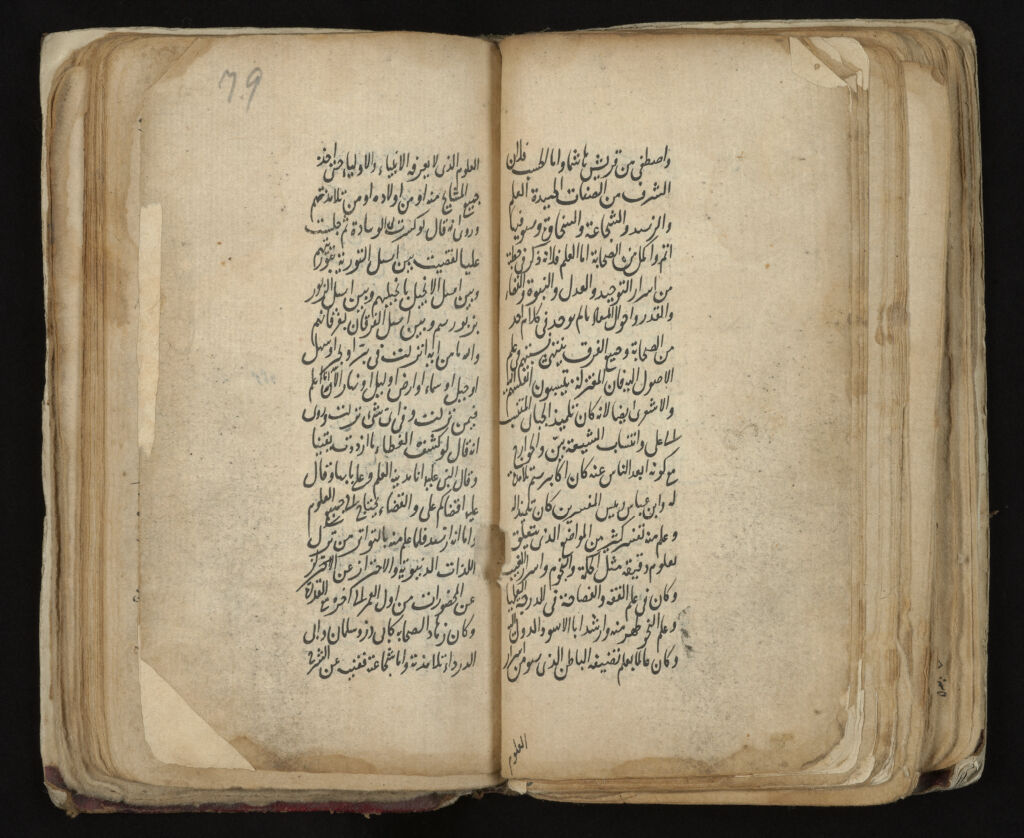 واصطفى من قريش هاشما واما الحسب فلان
الشرف من الصفات الحميدة العلم
والزهد والشجاعة والسخاوة وهو فيها
اتم واكمل من الصحابة اما العلم فلانه ذكر في خطبه
من اسرار التوحيد والعدل والنبوة والقضاء
والقدر واحوال المعاد ما لم يوجد في كلام احد
من الصحابة وجميع الفرق ينتهي نسبتهم في علم
الاصول اليه فان المعتزلة ينتسبون انفسهم اليه
والاشعرى ايضا لانه كان تلميذ الجبائي المنتسب
الى على وانتساب الشيعة بين والخوارج
مع كونه ابعد الناس عنه كان اكابرهم تلامذة
له وابن عباس رئيس المفسرين كان تلميذا له
وعلم منه تفسير كثير من المواضع الذى يتعلق
بعلوم دقيقة مثل الحكمة والنجوم واسرار الغيب
وكان في علم الفقه والفصاحة في الدرجة العليا
وعلم النحو ظهر منه وارشد ابا الاسود الدولى اليه
وكان عالما بعلم تصفية الباطن الذى هو من اسرار
العلوم
79
العلوم الذى لا يعرفه الا الانبياء والاولياء حتى اخذ
جميع المشايخ منه او من اولاده او من تلامذتهم
وروى انه قال لو كسرت لى الوسادة ثم جلست
عليها لقضيت بين اهل التورية بتوريتهم
وبين اهل الانجيل بانجيلهم وبين اهل الزبور
بزبورهم وبين اهل الفرقان بفرقانهم
والله ما من آية انزلت في بر او بحر او سهل
او جبل او سماء او ارض او ليل او نهار الا انا اعلم
فيمن نزلت وفى اى شىء نزلت وروى
انه قال لو كشف الغطاء ما ازددت يقينا
وقال النبي عليه انا مدينة العلم وعلي بابها وقال
عليه اقضاكم على والقضاء يحتاج الى جميع العلوم
واما انه ازهد فلما علم منه بالتواتر من ترك
اللذات الدنيوية والاحتراز عن
عن المحضورات من اول العمر الى اخره مع القدرة
وكان زهاد الصحابه كابى ذر وسلمان وابى
الدرداء تلامذته واما شجاعته فغنيه عن الشرح